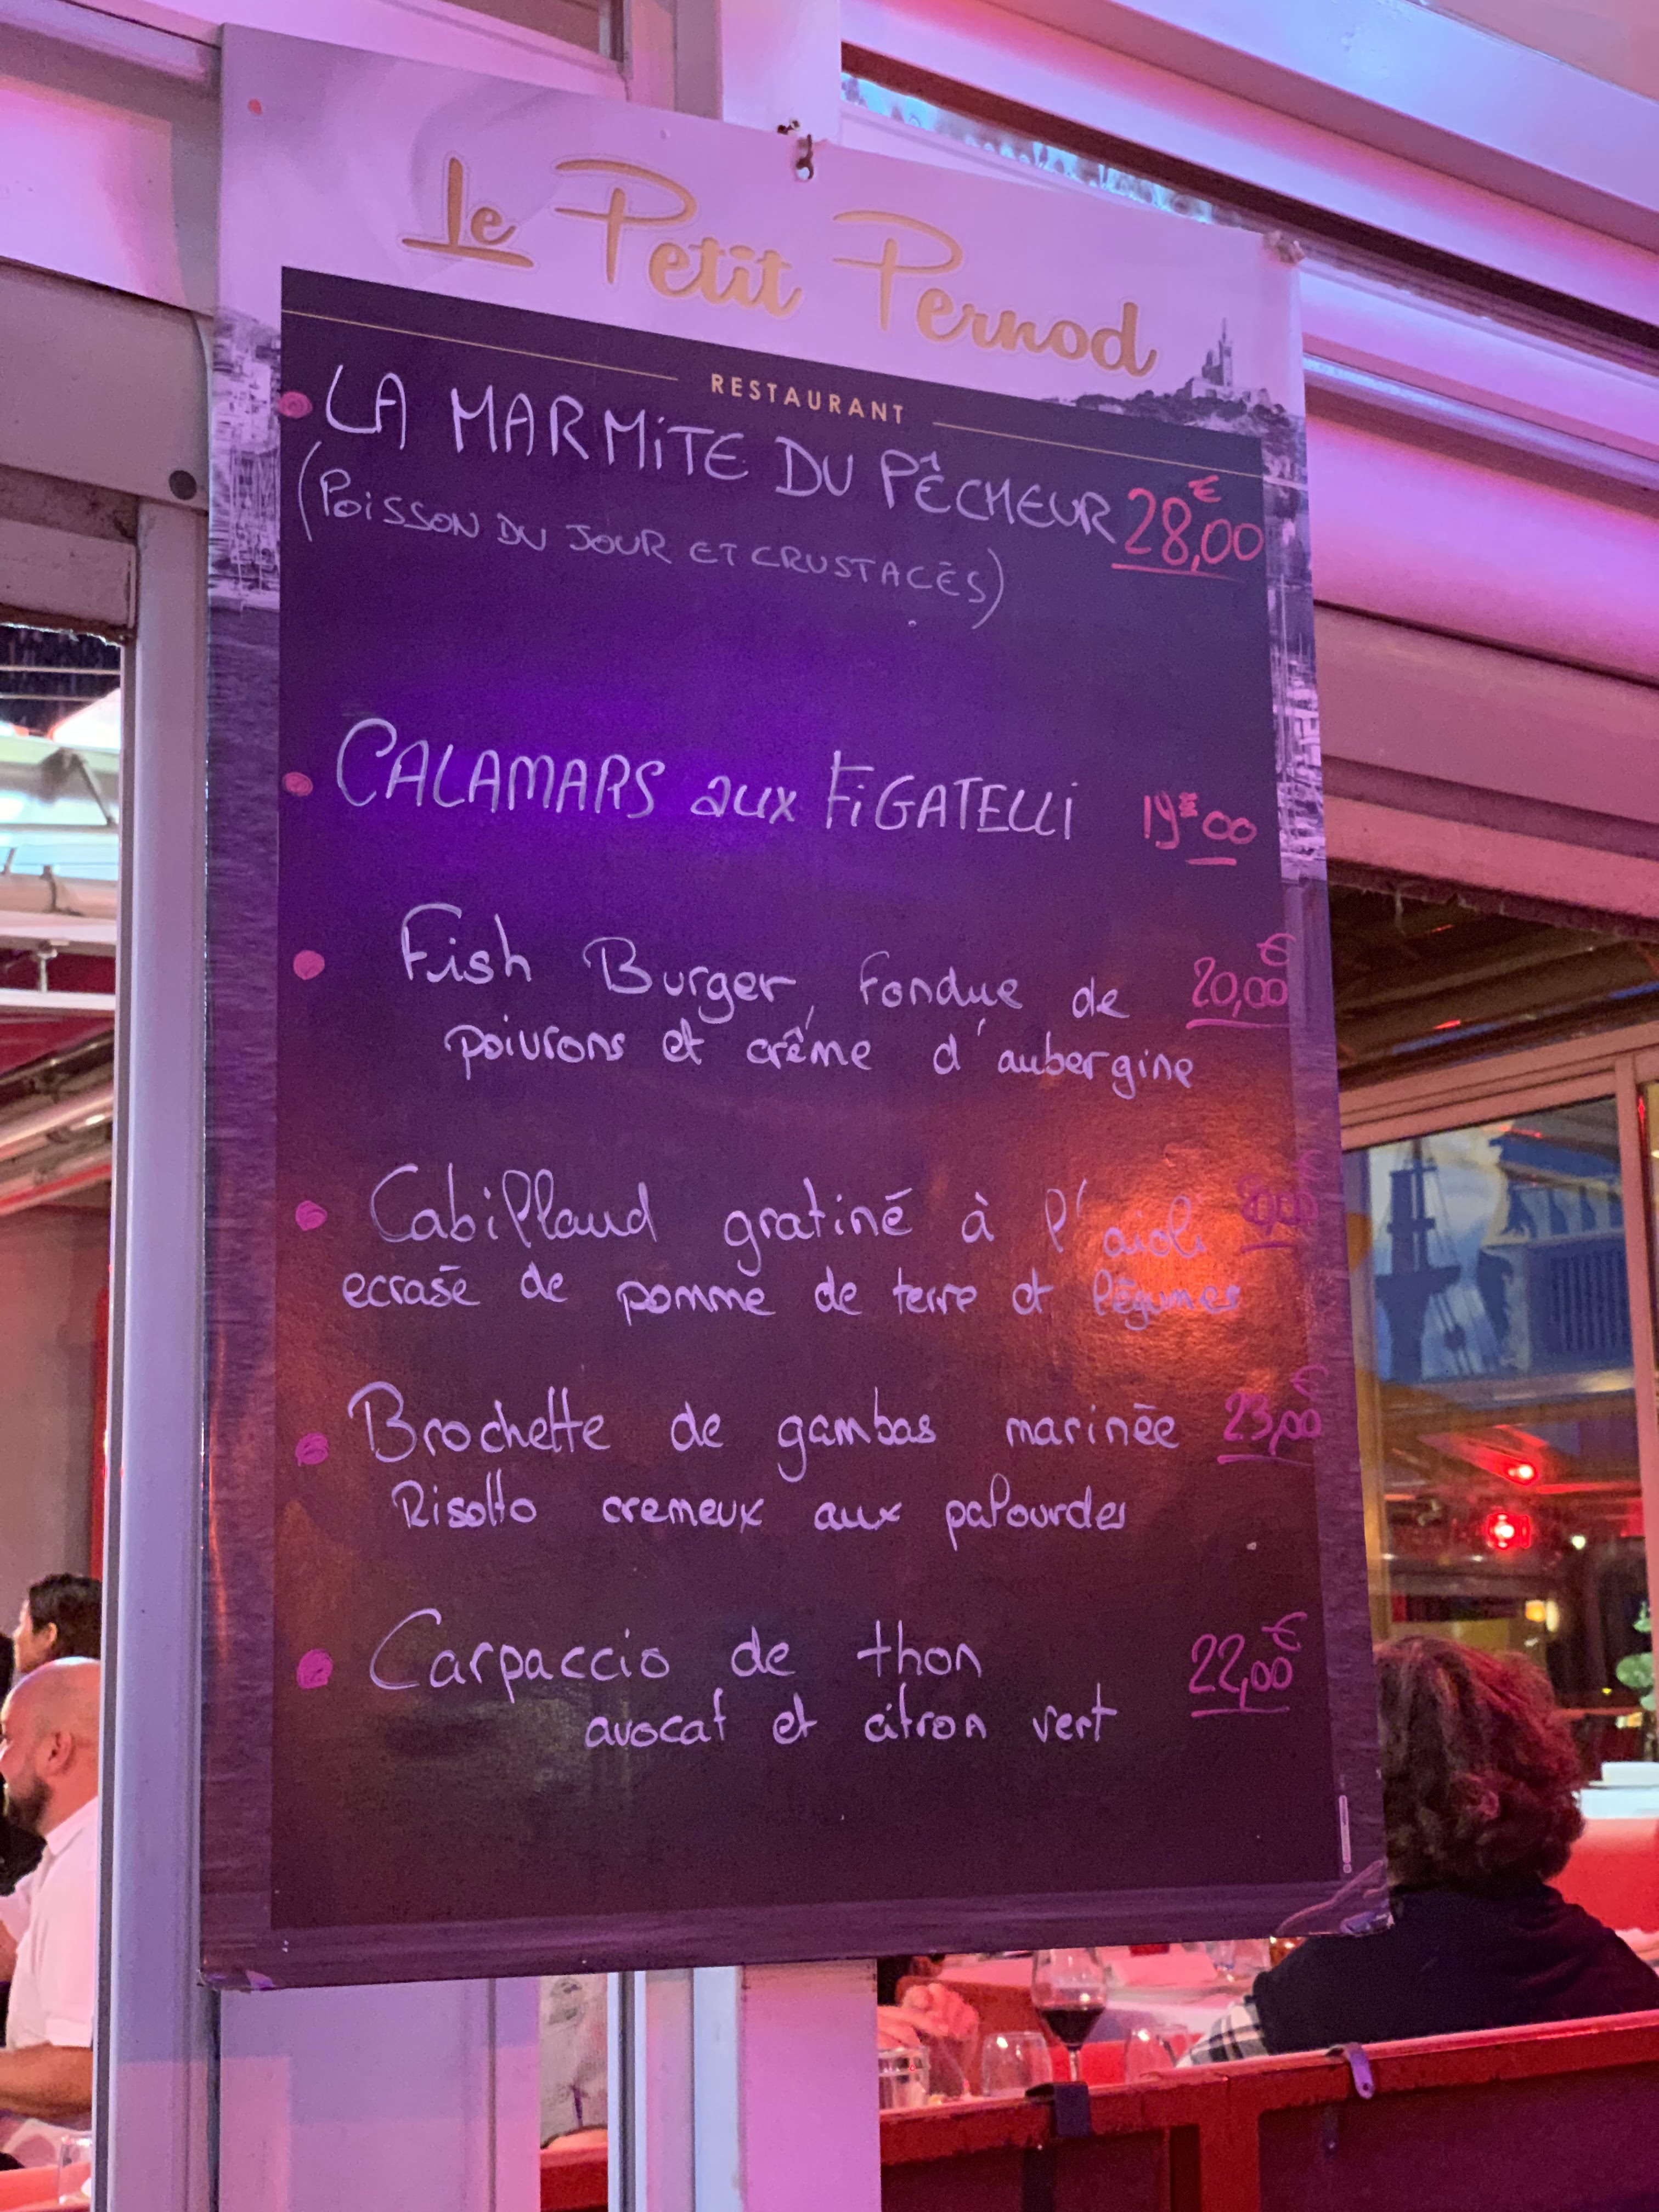 Le Petit Pernod
RESTAURANT
LA MARMiTE DU PÊCHEUR 28,00€
(POiSSON DU JOUR ET CRUSTACÉS)
CALAMARS aux FiGATELLi 19€00
Fish Burger, fondue de 20,00€
poivrons et crême d'aubergine
Cabillaud gratiné à l'aioli
ecrasé de pomme de terre et légumes
Brochette de gambas marinée 23,00€
Risotto cremeux aux palourdes
Carpaccio de thon 22,00€
avocat et citron vert